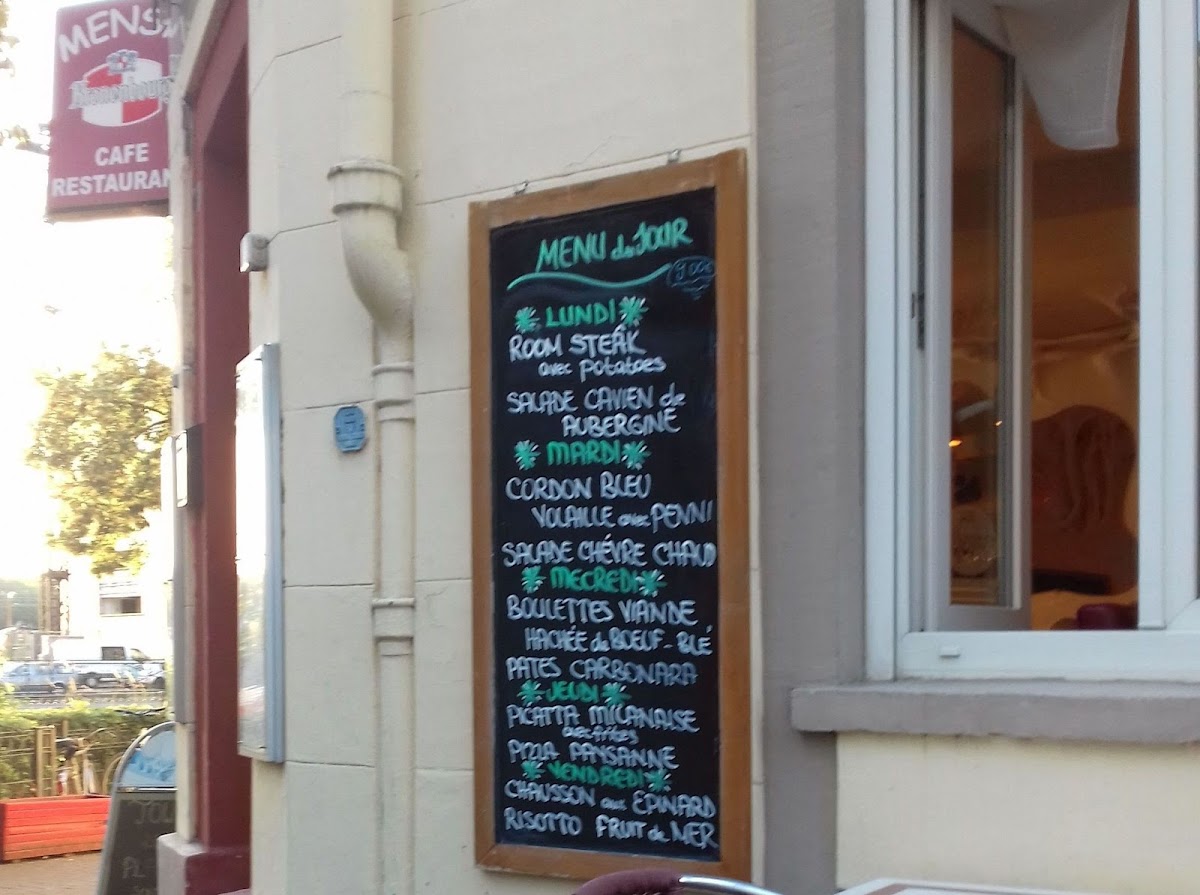 Kronenbourg
CAFE
MENU du JOUR
LUNDI
ROOM STEAK
avec potatoes
SALADE CAVIEN de
AUBERGINE
MARDI
CORDON BLEU
VOLAILLE avec PENNI
SALADE CHÉVRE CHAUD
MECREDI
BOULETTES VIANDE
HACHÉE de BOEUF-BLÉ
PATES CARBONARA
JEUDI
PICATTA MILANAISE
avec frites
PIZZA PAYSANNE
VENDREDI
CHAUSSON aux EPINARD
RISOTTO FRUIT de MER